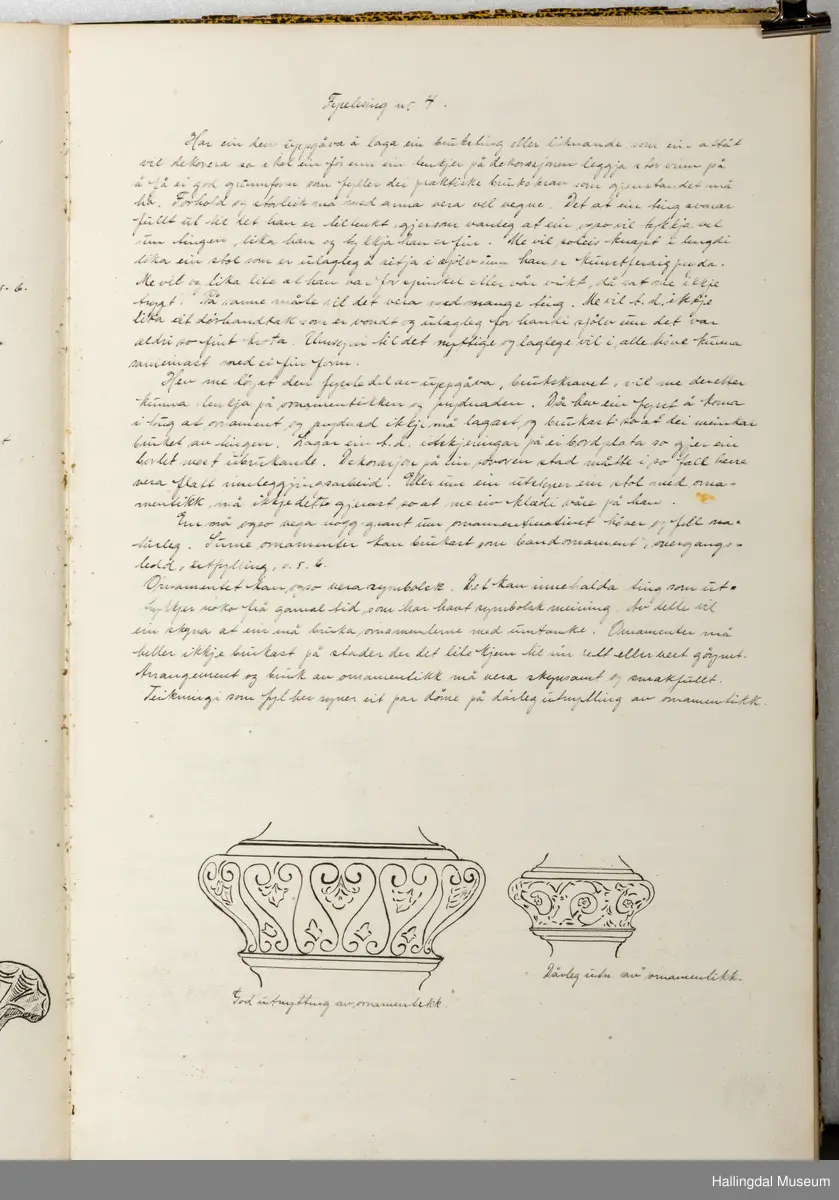 s. 6.
Fyrelesing nr 4.
Har ein den uppgåva å laga ein bruksting eller liknande, som ein attåt
vil dekorera so skal ein fór enn ein tenkjer på dekorasjonen leggja stor vinn på
å få ei god grunnform som fyller dei praktiske brukskrav som gjenstandet må
ha. Forhold og storleik må med anna vera vel vegne. Det at ein ting svarar
fullt ut til det han er tiltenkt, gjer som vanleg at ein ogso vil tykkja vel
um tingen, lika han og tykkja han er fin. Me vil soleis knapt i lengdi
lika ein stol som er ulagleg å sitja i sjølv um han er kunstferdig
Me vil og lika lite at han var for spinkel eller vår vikt, då sat me ikkje
trygt. På same måte vil det vera med mange ting. Me vil t.d. ikkje
lika eit dörhandtak som er vondt og ulagleg for handi sjölv um det var
aldri so fint Umsyni til det nyttige og laglege vil i alle höve kunna
sameinast med ei fin form.
Hev me löyst den fyrste del av uppgåva, brukskravet, vil me deretter
kunna tenkja på ornamentikken og prydnaden. Då hev ein fyrst å koma
i hug at ornament og prydnad ikkje må lagast og brukast so at dei minkar
bruket av tingen. Lagar ein t.d. utskjeringar på ei bordplata so gjer ein
bordet mest ubrukande. Dekorasjon på ein soven stad måtte i so fall berre
vera flatt innleggjingsarbeid. Eller um ein utstyrer ein stol med orna-
mentikk, må ikkje dette gjerast so at me riv klædi våre på han.
Ein må ogso vega nogg grant um ornamentmotivet höver og fell na-
turleg. Sume ornamenter kan brukast som bandornament, overgangs-
ledd, utfylling, o. s. b.
Ornamentet kan ogso vera symbolsk. Det kan innehalda ting som ut-
trykkjer noko frå gamal tid, som har havt symbolsk meining. Av dette vil
ein skyna at ein må bruka ornamenterne med umtanke. Ornamenter må
heller ikkje brukast på stader der det lite kjem til sin rett eller vert göymt.
Arrangement og bruk av ornamentikk må vera skynsamt og smakfullt.
Teikningi som fylgjer syner eit par döme på dårleg utnytting av ornamentikk.
God utnytting av „ornamentikk"
Dårleg utn. av „ornamentikk"
Hallingdal Museum